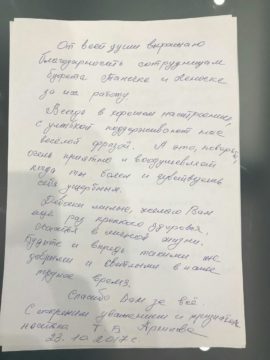 От всей души выражаю
благодарность сотрудницам
буфета Танечке и Леночке
за их работу.
Всегда в хорошем настроении,
с улыбкой поддерживают нас
веселой фразой. А это, поверьте,
очень приятно и воодушевляет
когда ты болен и чувствуешь
себя ущербным.
Девочки милые, желаю Вам
ещё раз крепкого здоровья,
счастья в личной жизни.
Будьте и впредь такими же
добрыми и светлыми в наше
трудное время.
Спасибо Вам за всё.
С огромным уважением и
Т. В.
23.10.2017 г.